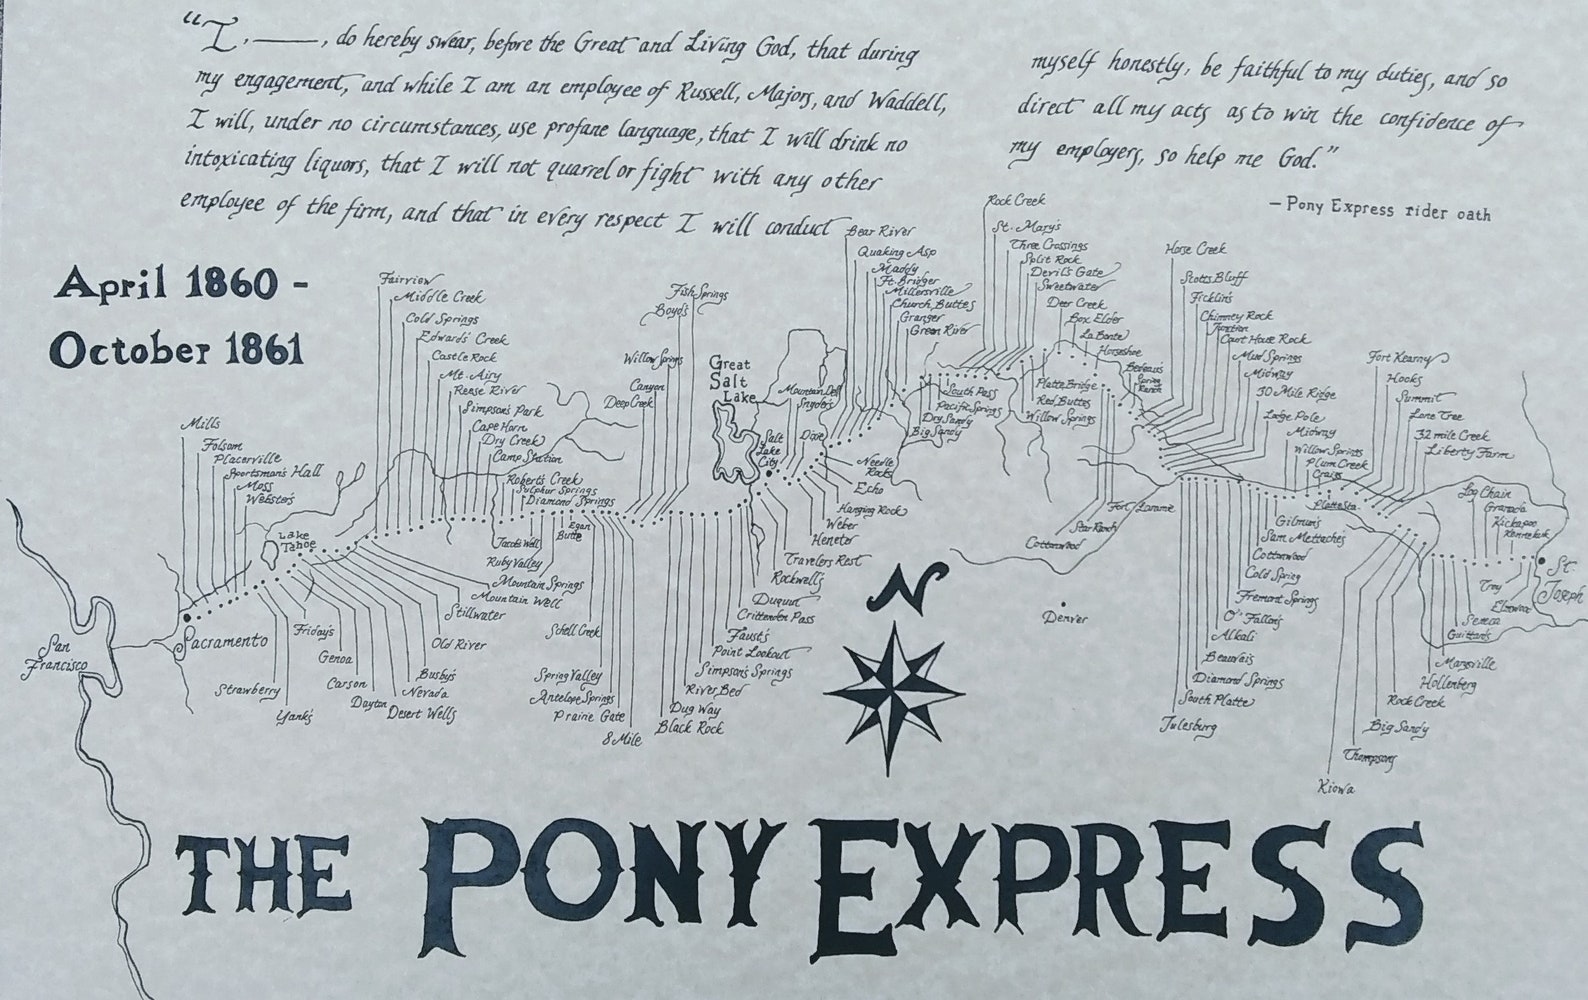 “I, ____, do hereby swear, before the Great and Living God, that during
my engagement, and while I am an employee of Russell, Majors, and Waddell,
I will, under no circumstances, use profane language, that I will drink no
intoxicating liquors, that I will not quarrel or fight with any other
employee of the firm, and that in every respect I will conduct
myself honestly, be faithful to my duties, and so
direct all my acts as to win the confidence of
my employers, so help me God.”
— Pony Express rider oath
April 1860 -
October 1861
Mills
Folsom
Placerville
Sportsman's Hall
Moss
Webster's
Lake
Tahoe
Fairview
Middle Creek
Cold Springs
Edwards' Creek
Castle Rock
Mt. Airy
Reese River
Simpson's Park
Cape Horn
Dry Creek
Camp Station
Robert's Creek
Sulphur Springs
Diamond Springs
Jacob's Well
Ruby Valley
Egan
Butte
Fish Springs
Boyd's
Willow Springs
Canyon
Deep Creek
Great
Salt
Lake
Salt
Lake
City
Mountain Dell
Snyder's
Dixie
Bear River
Quaking Asp
Muddy
Ft. Bridger
Millersville
Church Buttes
Granger
Green River
Rock Creek
St. Mary's
Three Crossings
Split Rock
Devil's Gate
Sweetwater
Deer Creek
Box Elder
La Bonte
Horseshoe
South Pass
Pacific Springs
Dry Sandy
Big Sandy
Platte Bridge
Red Buttes
Willow Springs
Horse Creek
Scotts Bluff
Ficklin's
Chimney Rock
Junction
Court House Rock
Mud Springs
Midway
30 Mile Ridge
Lodge Pole
Midway
Willow Springs
Plum Creek
Craig
Platte Sta.
Fort Kearny
Hooks
Summit
Lone Tree
32 mile Creek
Liberty Farm
Log Chain
Granada
Kickapoo
Kennekuk
St.
Joseph
Troy
Elmwood
Seneca
Guittard's
Marysville
Hollenberg
Rock Creek
Big Sandy
Thompsons
Kiowa
Needle
Rocks
Echo
Hanging Rock
Weber
Henefer
Travelers Rest
Rockwell's
Dugout
Crittenden Pass
Faust's
Point Lookout
Simpson's Springs
River Bed
Dug Way
Black Rock
Star Ranch
Cottonwood
Fort Laramie
Denver
Gilman's
Sam Mettaches
Cottonwood
Cold Spring
Fremont Springs
O'Fallons
Alkali
Beauvais
Diamond Springs
South Platte
Julesburg
San
Francisco
Sacramento
Strawberry
Yank's
Friday's
Genoa
Carson
Dayton
Desert Wells
Nevada
Busby's
Old River
Stillwater
Mountain Well
Mountain Springs
Schell Creek
Spring Valley
Antelope Springs
Prairie Gate
8 Mile
N
THE PONY EXPRESS